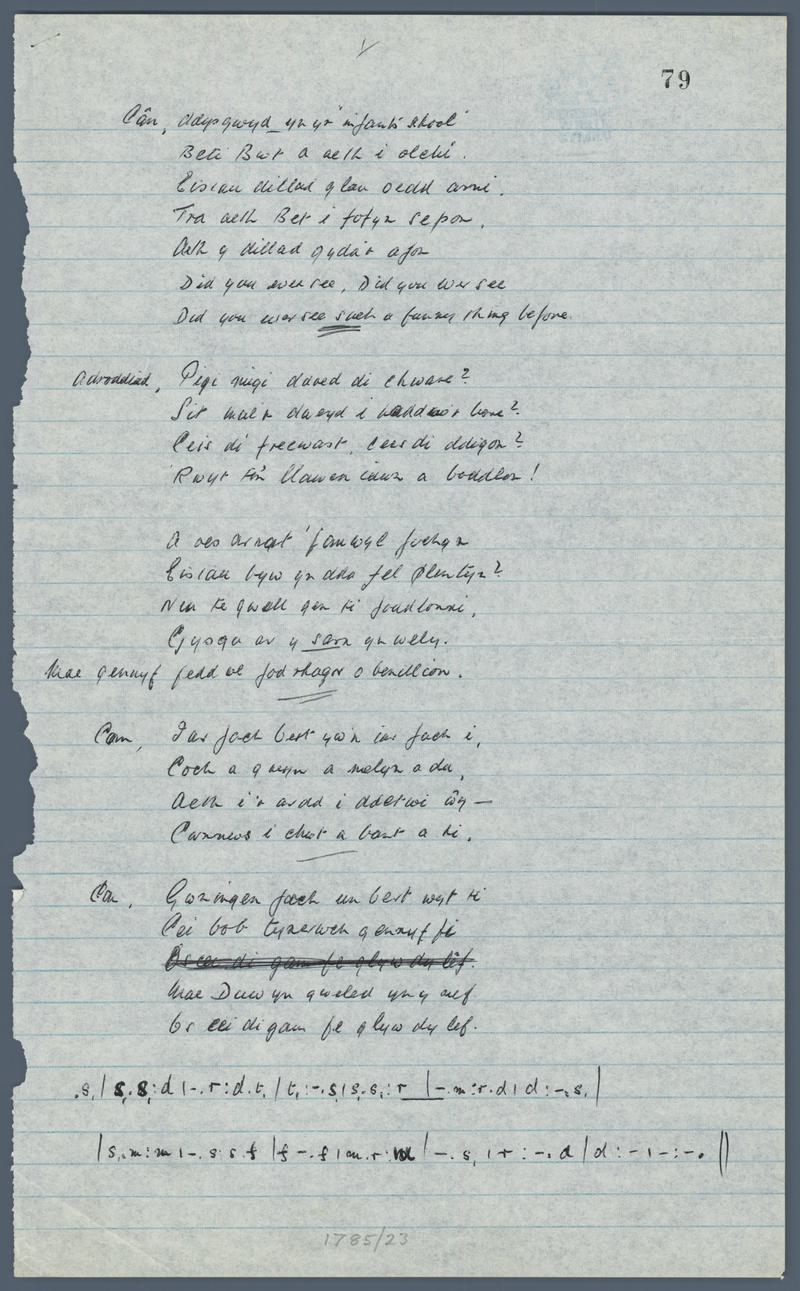 79
Cân, ddysgwyd yn yr "infants school"
Beti Bwt a aeth i olchi.
Eisiau dillad glan oedd arni.
Tra aeth Bet i fofyn sepon,
Aeth y dillad gyda'r afon
Did you ever see, Did you ever see
Did you ever see such a funny thing before.
Adroddiad, Pigi migi ddoed di chware?
Sit mae'r dwryd i bore?
Ceis di frecwast, cees di ddigon?
'Rwyt ti'n llawen iawn a boddlon!
A oes arnat 'fanwyl fochyn
Eisiau byw yn dda fel plentyn?
Neu te gwell gen ti foudlonni,
Cysgu ar y sarn yn wely.
Mae gennyf fedd wl fod rhagor o benillion.
Can, Iar fach bert yw'n iar fach i,
Coch a gwyn a melyn a du,
Aeth i'r ardd i ddetwi ŵy —
Cwnnws i chwt a bant a hi.
Can, Gwningen fach un bert wyt ti
Cei bob tynerwch gennyf fi
Os cei di gam fe glyw dy lêf.
Mae Duw yn gweled yn y nef
Os cei di gam fe glyw dy lef.
.s,| s,.s,:d |-.r:d.t, | t,:-.s,|s,.s,:r |-.m:r.d| d:-.s,|
|s,.m:m|-.s:s.f |f-.f|m.r:m|-.s,|r:-.d|d:-|-:-.||
1785/23